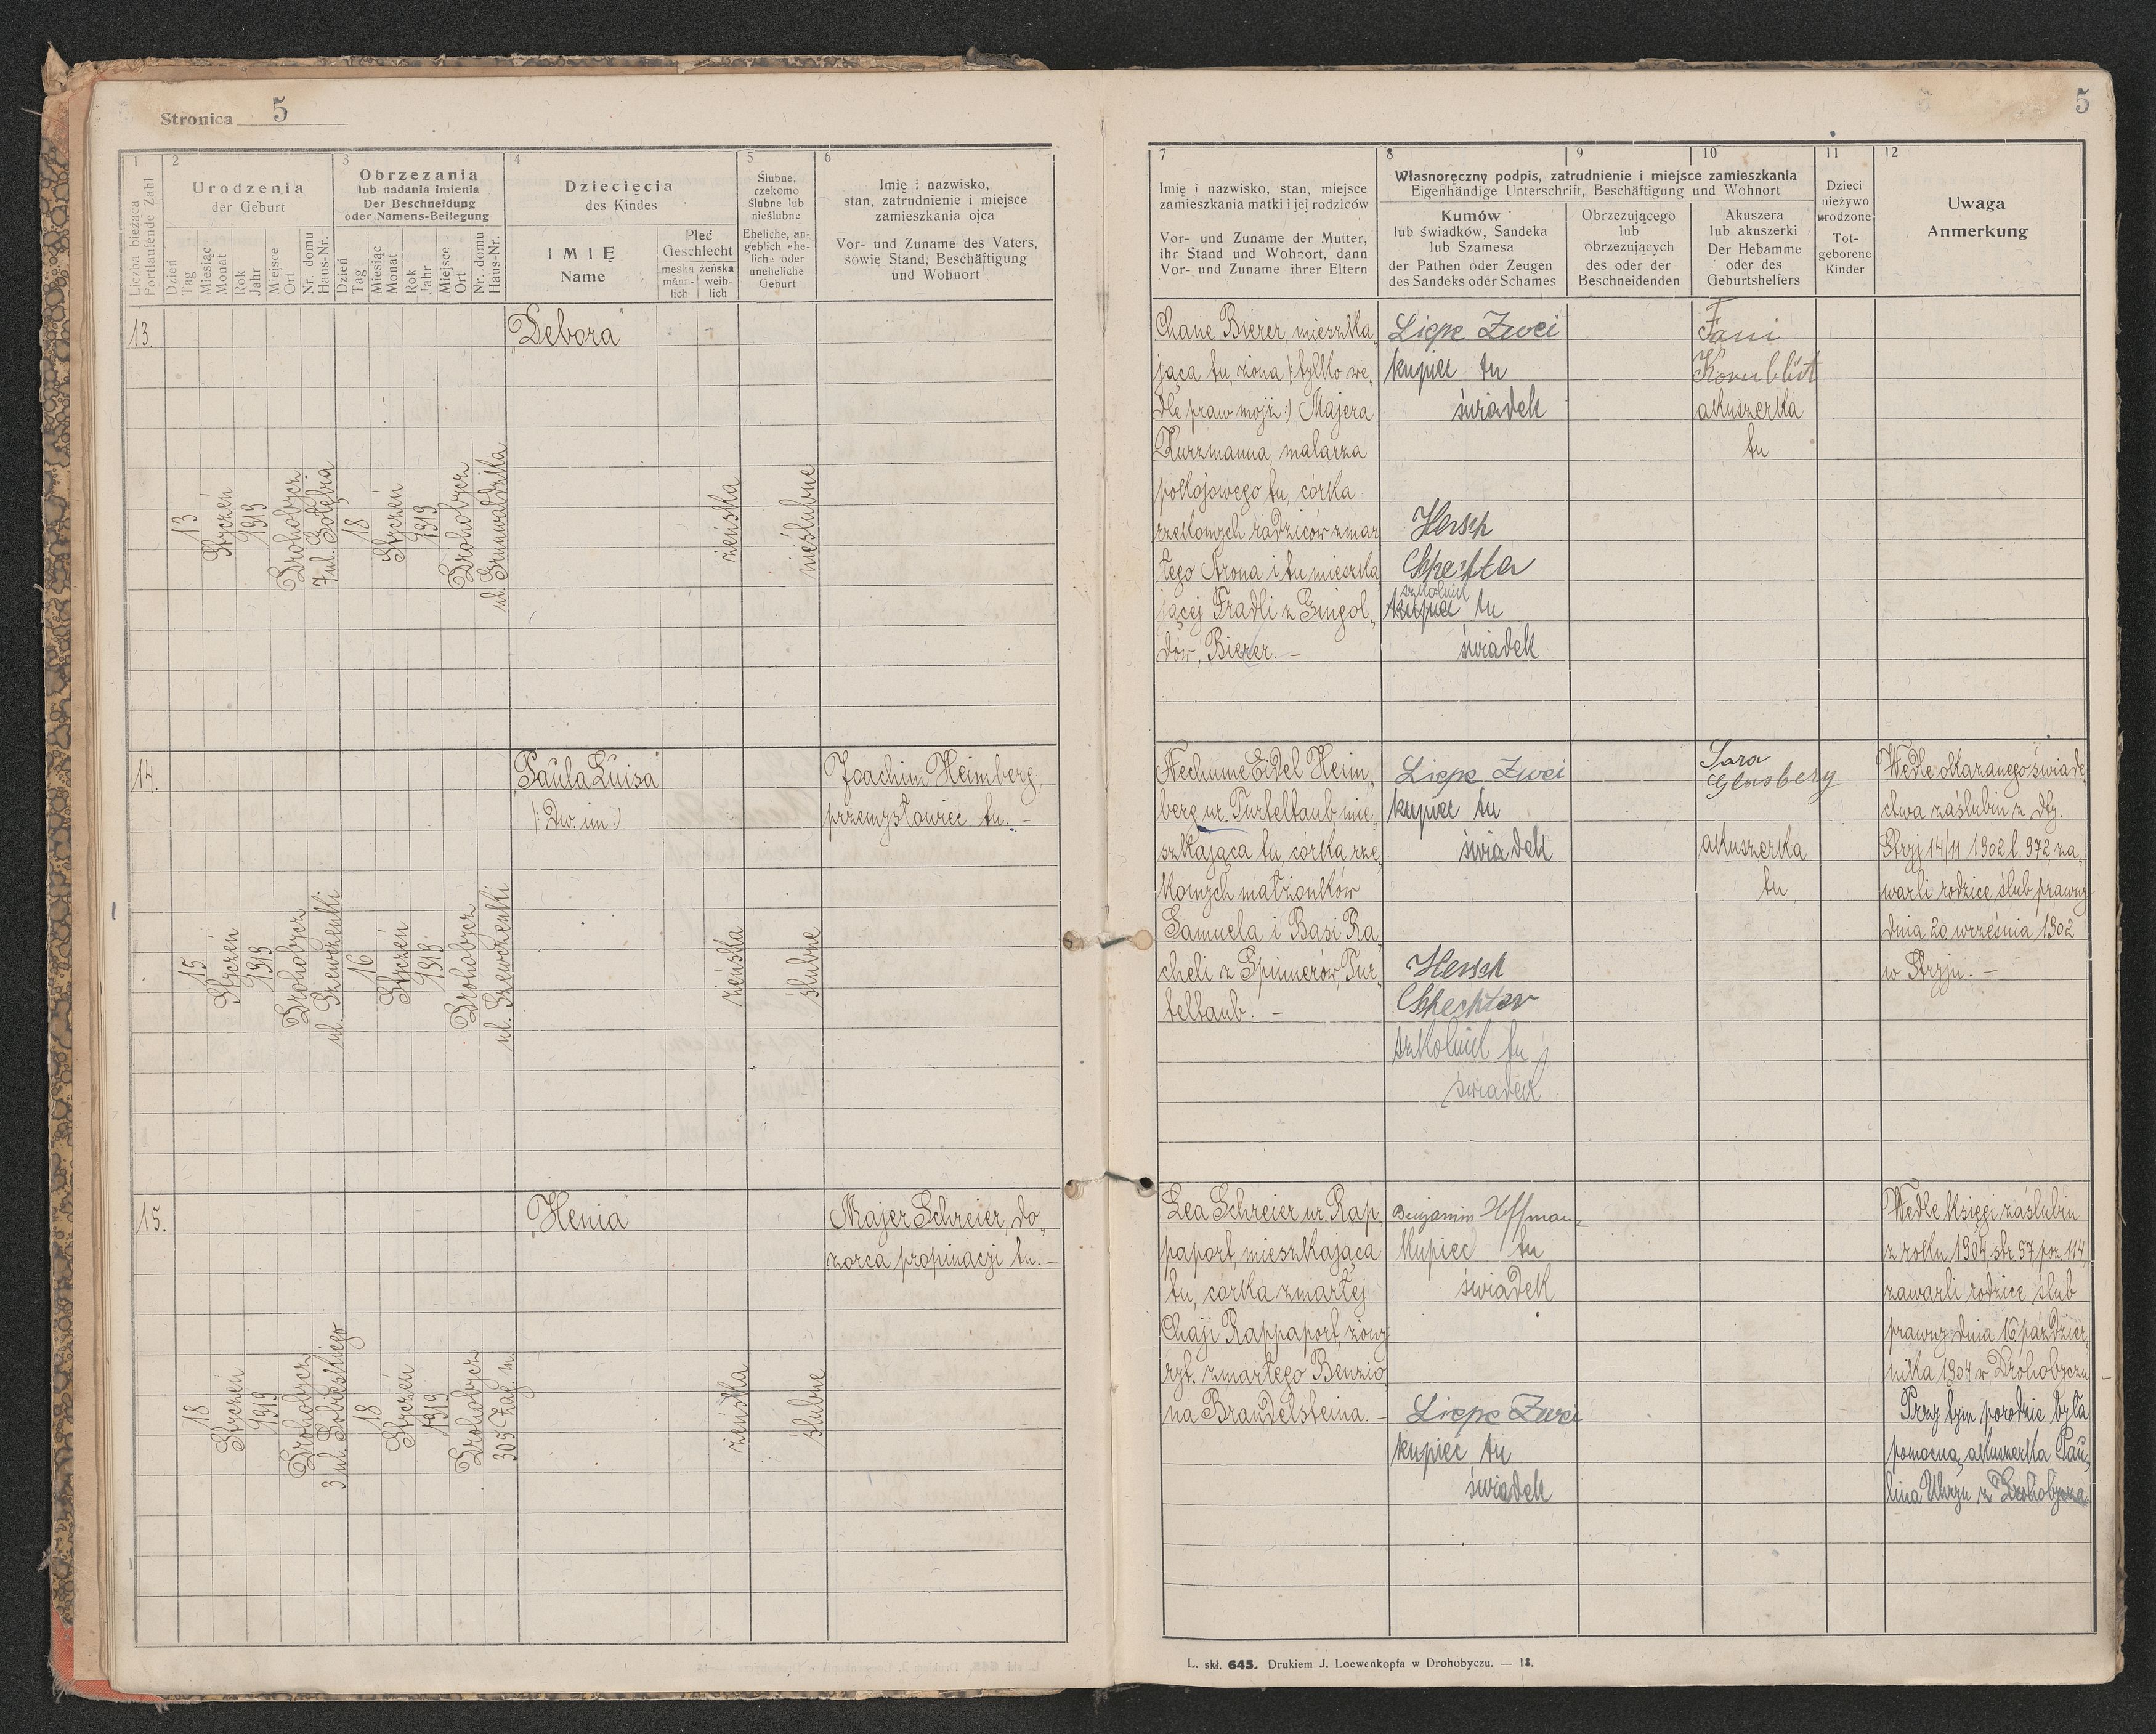 Stronica 5
5
1
2
3
4
5
6
Liczba bieżąca
Fortlaufende Zahl
Urodzenia
der Geburt
Dzień
Tag
Miesiąc
Monat
Rok
Jahr
Miejsce
Ort
Nr. domu
Haus-Nr.
Obrzezania
lub nadania imienia
Der Beschneidung
oder Namens-Beilegung
Dzień
Tag
Miesiąc
Monat
Rok
Jahr
Miejsce
Ort
Nr. domu
Haus-Nr.
Dziecięcia
des Kindes
IMIĘ
Name
Płeć
Geschlecht
męska
männ-
lich
żeńska
weib-
lich
Ślubne,
rzekomo
ślubne lub
nieślubne
Eheliche, an-
geblich ehe-
liche oder
uneheliche
Geburt
Imię i nazwisko,
stan, zatrudnienie i miejsce
zamieszkania ojca
Vor- und Zuname des Vaters,
sowie Stand, Beschäftigung
und Wohnort
7
8
9
10
11
12
Imię i nazwisko, stan, miejsce
zamieszkania matki i jej rodziców
Vor- und Zuname der Mutter,
ihr Stand und Wohnort, dann
Vor- und Zuname ihrer Eltern
Własnoręczny podpis, zatrudnienie i miejsce zamieszkania
Eigenhändige Unterschrift, Beschäftigung und Wohnort
Kumów
lub świadków, Sandeka
lub Szamesa
der Pathen oder Zeugen
des Sandeks oder Schames
Obrzezującego
lub
obrzezujących
des oder der
Beschneidenden
Akuszera
lub akuszerki
Der Hebamme
oder des
Geburtshelfers
Dzieci
nieżywo
urodzone
Tot-
geborene
Kinder
Uwaga
Anmerkung
13.
13
Styczeń
1919
Drohobycz
7 ul. Gołębia
18
Styczeń
1919
Drohobycz
ul. Grunwaldzka
"Debora"
żeńska
nieślubne
Chane Bierer mieszka„
jąca tu, żona /: tylko we„
dle praw mojż :/ Majera
Kurzmanna, malarza
pokojowego tu, córka
rzekomych rodziców zmar
łego Arona i tu mieszka
jącej Fradli z Gingol„
dów, Bierer. —
Liepe Zwei
kupiec tu
świadek
Hersch
szkolnik
kupiec tu
świadek
Fani
Kornblüt
akuszerka
tu
14.
15
Styczeń
1919
Drohobycz
ul. Szewczenki
16
Styczeń
1919
Drohobycz
ul. Szewczenki
"Paula Luisa"
/: Dw. im :/
żeńska
ślubne
Joachim Heimberg,
przemysłowiec tu. —
Nechume Eidel Heim„
berg ur. Turteltaub mie„
szkająca tu, córka rze„
komych małżonków
Samuela i Basi Ra„
cheli z Spinnerów, Tur„
teltaub. —
Liepe Zwei
kupiec tu
świadek
Hersch
szkolnik tu
świadek
Sara
Glasberg
akuszerka
tu
Wedle okazanego świade„
ctwa zaślubin z dtg.
Stryj 14/11 1902 l. 972 za„
warli rodzice ślub prawny
dnia 20 września 1902
w Stryju. —
15.
18
Styczeń
1919
Drohobycz
3 ul. Sobieskiego
18
Styczeń
1919
Drohobycz
305 Zag. m.
"Henia"
żeńska
ślubne
Majer Schreier, do„
zorca propinacji tu. —
Lea Schreier ur. Rap„
paport, mieszkająca
tu, córka zmarłej
Chaji Rappaport, żony
ryt. zmarłego Benzio„
na Brandelsteina. —
Benjamin Hoffman
Kupiec tu
świadek
Liepe Zwei
kupiec tu
świadek
Wedle księgi zaślubin
z roku 1904, str. 57, poz 114,
zawarli rodzice ślub
prawny dnia 16 paździer„
nika 1904 w Drohobyczu —
Przy tym porodzie była
pomocną akuszerka Pau„
lina z Drohobycza
L. skł. 645. Drukiem J. Loewenkopfa w Drohobyczu. — 18.